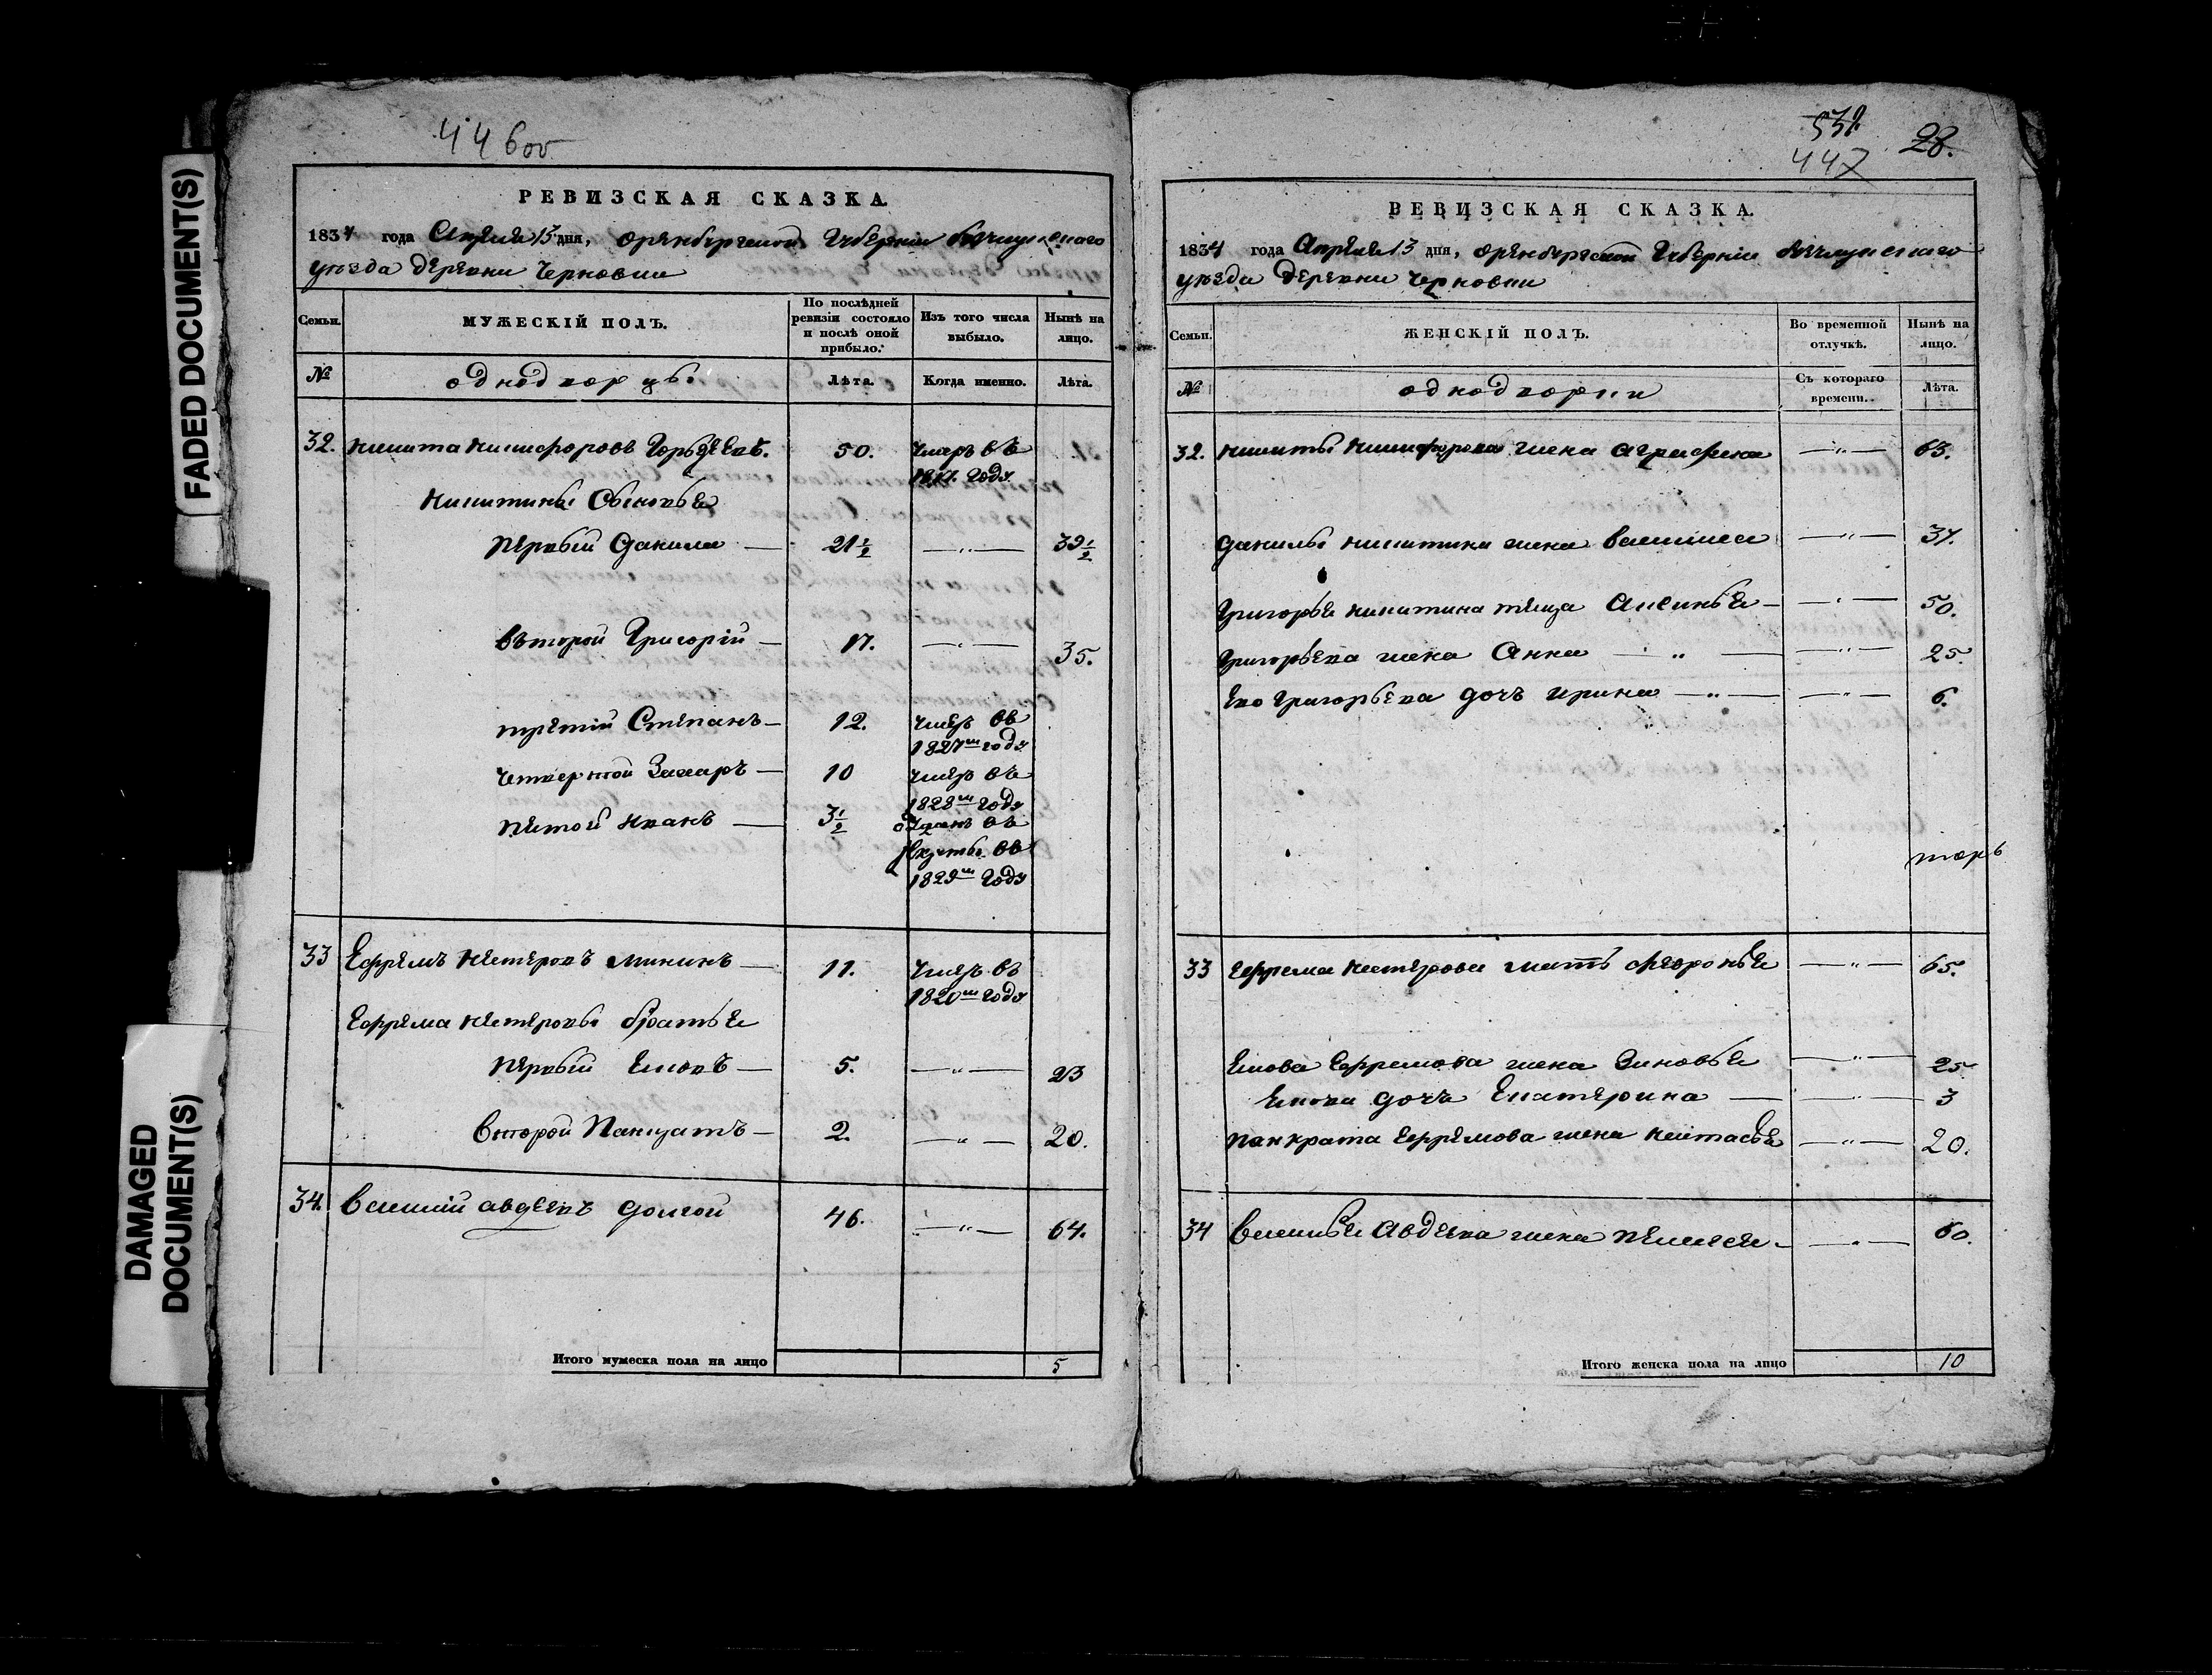 FADED DOCUMENT(S)
DAMAGED
DOCUMENT(S)
446об
РЕВИЗСКАЯ СКАЗКА.
1834 года Апреля 13 дня, Оренбургской Губернiи
уезда деревни Черновки
Семьи.
МУЖЕСКIЙ ПОЛЪ.
По послѣдней
ревизiи состояло
и послѣ оной
прибыло.
Изъ того числа
выбыло.
Нынѣ на
лицо.
№
однодворцы
Лѣта.
Когда именно.
Лѣта.
32. Никита Никифоровъ Гордеевъ. 50. Умеръ въ
году
Никитины Сыновья
первый Данила — 21½ —"— 39½
въторой Григорiй — 17. —"— 35.
третiй Степанъ — 12. Умеръ въ
1827м году
четверной Захаръ — 10 Умеръ въ
1828м году
пятой Иванъ — 3½ отданъ въ
рекруты въ
1829м году
33 Ефремъ Нестеровъ Мининъ — 11. Умеръ въ
1820м году
Ефрема Нестеровы братья
первый Ековъ — 5. —"— 23
Второй Панкратъ — 2. —"— 20.
34. Василiй Авдеевъ Долгой 46. —"— 64.
Итого мужеска пола на лицо 5
538
447
28.
РЕВИЗСКАЯ СКАЗКА.
1834 года Апреля 13 дня, Оренбургской Губернiи
уезда деревни Черновки
Семьи.
ЖЕНСКIЙ ПОЛЪ.
Во временной
отлучкѣ.
Нынѣ на
лицо.
№
однодворки
Съ котораго
времени.
Лѣта.
32. Никиты Никифорова жена Аграфена —"— 63.
Данилы Никитина жена Василиса —"— 37.
Григорья Никитина теща Аксинья — —"— 50.
Григорьева жена Анна — " — —"— 25.
Ево Григорьева дочъ Ирина —"— —"— 6.
33 Ефрема Нестерова мать Февронья —"— 65.
Екова Ефремова жена Зиновья —"— 25
Екова дочъ Екатерина — —"— 3
Панкрата Ефремова жена Настасья —"— 20.
34 Василья Авдеева жена Пелагея — —"— 60.
Итого женска пола на лицо 10